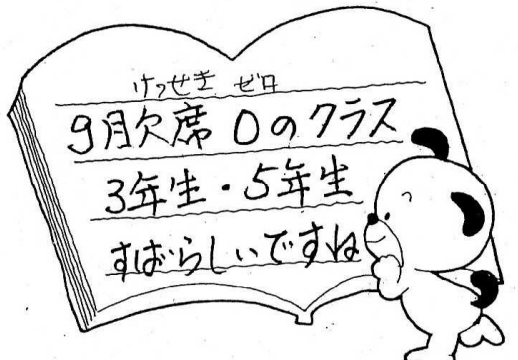 けっせき ゼロ
9月欠席 0のクラス
3年生・5年生
すばらしいですね